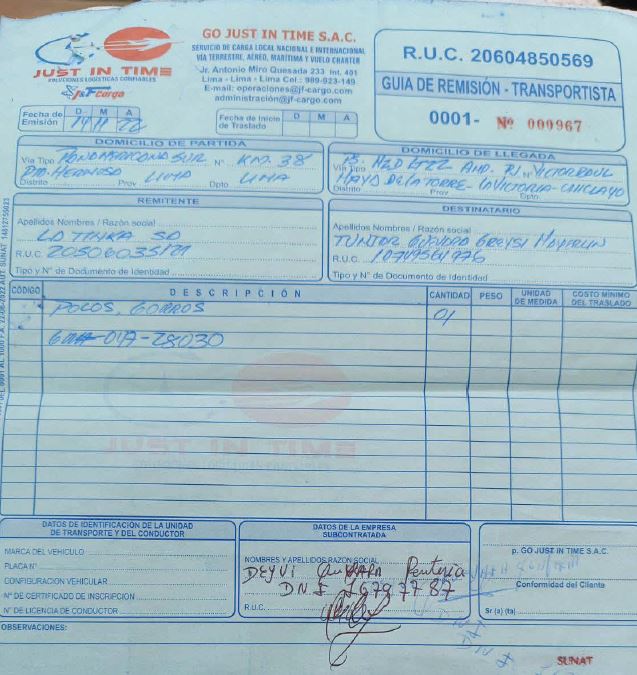 GO JUST IN TIME S.A.C.
SERVICIO DE CARGA LOCAL NACIONAL E INTERNACIONAL
VIA TERRESTRE, AÉREO, MARÍTIMA Y VUELO CHARTER
Jr. Antonio Miro Quesada 233 Int. 401
Lima - Lima - Lima Cel.: 989-923-149
E-mail: operaciones@jf-cargo.com
administración@jf-cargo.com
JUST IN TIME
SOLUCIONES LOGISTICAS CONFIABLES
J&F Cargo
R.U.C. 20604850569
GUIA DE REMISIÓN - TRANSPORTISTA
0001- Nº 000967
Fecha de Emisión D M A
14 11 22
Fecha de Inicio de Traslado D M A
DOMICILIO DE PARTIDA
Vía Tipo PANAMERICANA SUR Nº KM. 38
PTA. HERMOSA LIMA LIMA
Distrito Prov Dpto
DOMICILIO DE LLEGADA
Vía Tipo Nº
LA VICTORIA - CHICLAYO
Distrito Prov Dptn
REMITENTE
Apellidos Nombres / Razón social
LA TINKA SA
R.U.C. 20506035121
Tipo y N° de Documento de Identidad
DESTINATARIO
Apellidos Nombres / Razón social
R.U.C.
Tipo y N° de Documento de Identidad
CÓDIGO DESCRIPCIÓN CANTIDAD PESO UNIDAD DE MEDIDA COSTO MINIMO DEL TRASLADO
POLOS, GORROS 01
017-28030
DATOS DE IDENTIFICACIÓN DE LA UNIDAD DE TRANSPORTE Y DEL CONDUCTOR
MARCA DEL VEHICULO
PLACA Nº
CONFIGURACIÓN VEHICULAR
Nº DE CERTIFICADO DE INSCRIPCIÓN
Nº DE LICENCIA DE CONDUCTOR
DATOS DE LA EMPRESA SUBCONTRATADA
NOMBRES Y APELLIDOS RAZÓN SOCIAL
DEYVI
DNI
R.U.C.
p. GO JUST IN TIME S.A.C.
Conformidad del Cliente
Sr (a) (ta)
OBSERVACIONES:
SUNAT